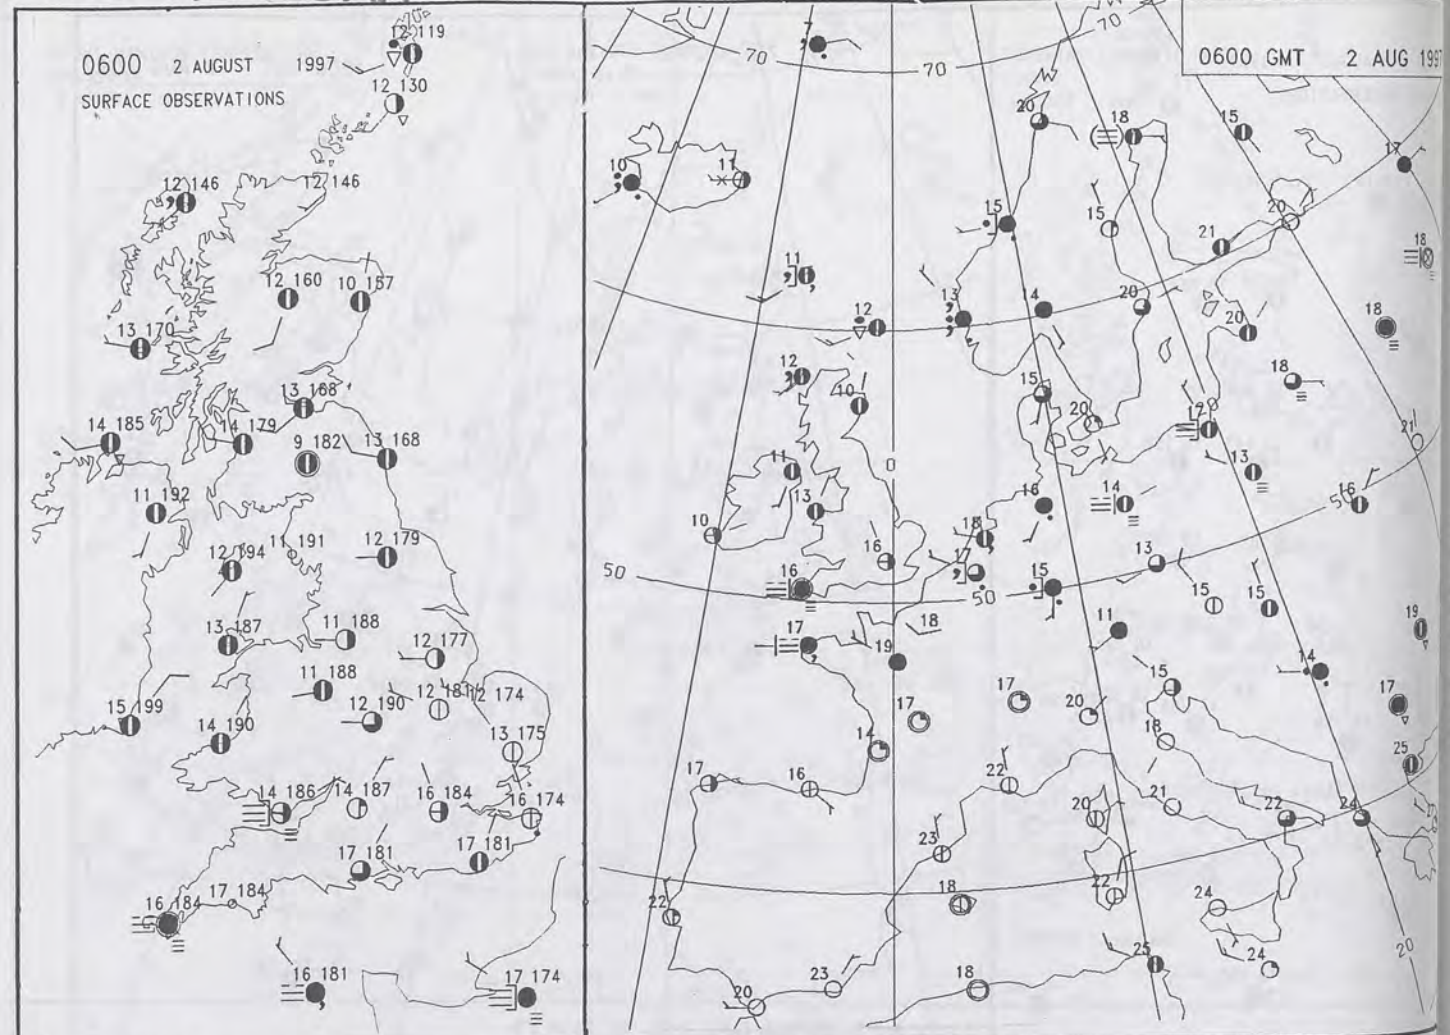 0600 2 AUGUST 1997
SURFACE OBSERVATIONS
12 119
12 130
12 146
12 146
12 160
10 157
13 170
13 168
14 185
14 179
9 182
13 168
11 192
12 194
11 191
12 179
13 187
11 188
12 177
11 188
12 181
12 174
12 190
15 199
14 190
13 175
14 186
14 187
16 184
16 174
17 181
17 181
16 184
17 184
16 181
17 174
0600 GMT 2 AUG 1997
7
70
70
70
20
18
15
17
10
11
15
15
20
21
18
11
12
13
14
20
20
18
12
10
15
20
17
18
21
11
0
13
16
14
13
16
50
10
16
18
17
15
13
15
15
50
16
50
17
19
18
11
14
19
17
17
20
15
18
17
14
25
17
16
22
20
21
22
24
23
22
18
22
24
20
20
23
18
25
24